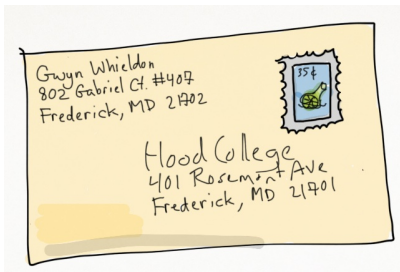 Gwyn Whieldon
802 Gabriel Ct. #407
Frederick, MD 21702
35¢
Hood College
401 Rosemont Ave
Frederick, MD 21701